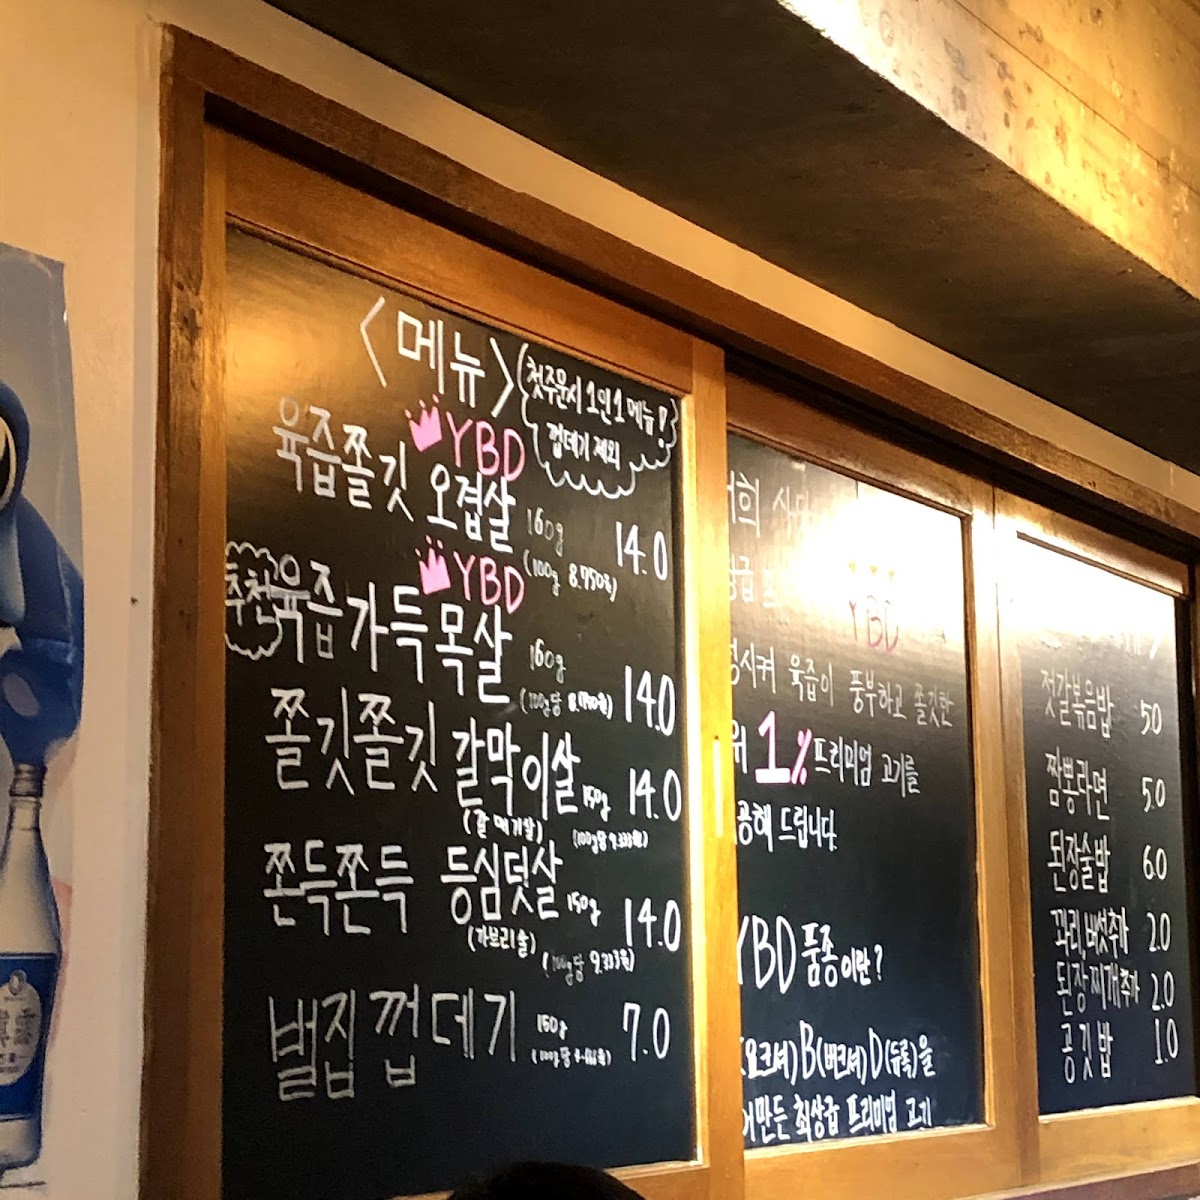 <메뉴>
첫주문시 1인1메뉴!
껍데기 제외
YBD
육즙쫄깃 오겹살 160g 14.0
(100g 8.750원)
YBD
추천 육즙가득 목살 160g 14.0
(100g당 8.750원)
쫄깃쫄깃 갈막이살 150g 14.0
(갈매기살) (100g당 9.333원)
쫀득쫀득 등심덧살 150g 14.0
(가브리살) (100g당 9.333원)
벌집껍데기 150g 7.0
(100g당
YBD
육즙이 풍부하고 쫄깃한
1% 프리미엄 고기를
드립니다.
YBD 품종이란?
B(버크셔)D(듀록)을
만든 최상급 프리미엄 고기
젓갈볶음밥 5.0
짬뽕라면 5.0
된장술밥 6.0
꽈리,버섯추가 2.0
된장찌개추가 2.0
공깃밥 1.0